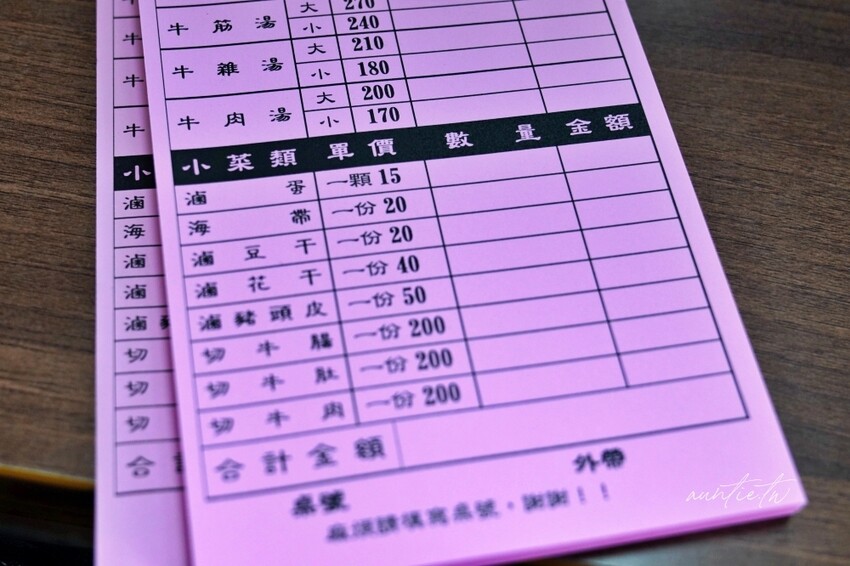 大 270
牛筋湯 小 240
牛雜湯 大 210
小 180
牛肉湯 大 200
小 170
小菜類 單價 數量 金額
滷蛋 一顆 15
海帶 一份 20
滷豆干 一份 20
滷花干 一份 40
滷豬頭皮 一份 50
切牛腸 一份 200
切牛肚 一份 200
切牛肉 一份 200
合計金額
桌號 外帶
麻煩請填寫桌號，謝謝！！
牛
牛
牛
牛
小
滷
海
滷
滷
滷豬
切
切
切
合計
auntie.tw